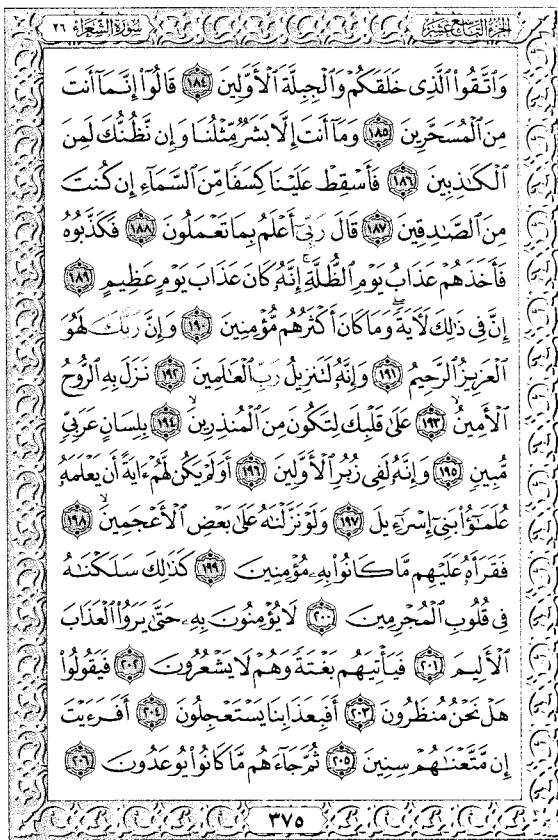 الجزء التاسع عشر
سورة الشعراء ٢٦
وَاتَّقُوا۟ الَّذِى خَلَقَكُمْ وَالْجِبِلَّةَ الْأَوَّلِينَ ١٨٤ قَالُوٓا۟ إِنَّمَآ أَنتَ
مِنَ الْمُسَحَّرِينَ ١٨٥ وَمَآ أَنتَ إِلَّا بَشَرٌ مِّثْلُنَا وَإِن نَّظُنُّكَ لَمِنَ
الْكَـٰذِبِينَ ١٨٦ فَأَسْقِطْ عَلَيْنَا كِسَفًا مِّنَ السَّمَآءِ إِن كُنتَ
مِنَ الصَّـٰدِقِينَ ١٨٧ قَالَ رَبِّىٓ أَعْلَمُ بِمَا تَعْمَلُونَ ١٨٨ فَكَذَّبُوهُ
فَأَخَذَهُمْ عَذَابُ يَوْمِ الظُّلَّةِ ۚ إِنَّهُۥ كَانَ عَذَابَ يَوْمٍ عَظِيمٍ ١٨٩
إِنَّ فِى ذَٰلِكَ لَـَٔايَةً ۖ وَمَا كَانَ أَكْثَرُهُم مُّؤْمِنِينَ ١٩٠ وَإِنَّ رَبَّكَ لَهُوَ
الْعَزِيزُ الرَّحِيمُ ١٩١ وَإِنَّهُۥ لَتَنزِيلُ رَبِّ الْعَـٰلَمِينَ ١٩٢ نَزَلَ بِهِ الرُّوحُ
الْأَمِينُ ١٩٣ عَلَىٰ قَلْبِكَ لِتَكُونَ مِنَ الْمُنذِرِينَ ١٩٤ بِلِسَانٍ عَرَبِىٍّ
مُّبِينٍ ١٩٥ وَإِنَّهُۥ لَفِى زُبُرِ الْأَوَّلِينَ ١٩٦ أَوَلَمْ يَكُن لَّهُمْ ءَايَةً أَن يَعْلَمَهُۥ
عُلَمَـٰٓؤُا۟ بَنِىٓ إِسْرَٰٓءِيلَ ١٩٧ وَلَوْ نَزَّلْنَـٰهُ عَلَىٰ بَعْضِ الْأَعْجَمِينَ ١٩٨
فَقَرَأَهُۥ عَلَيْهِم مَّا كَانُوا۟ بِهِۦ مُؤْمِنِينَ ١٩٩ كَذَٰلِكَ سَلَكْنَـٰهُ
فِى قُلُوبِ الْمُجْرِمِينَ ٢٠٠ لَا يُؤْمِنُونَ بِهِۦ حَتَّىٰ يَرَوُا۟ الْعَذَابَ
الْأَلِيمَ ٢٠١ فَيَأْتِيَهُم بَغْتَةً وَهُمْ لَا يَشْعُرُونَ ٢٠٢ فَيَقُولُوا۟
هَلْ نَحْنُ مُنظَرُونَ ٢٠٣ أَفَبِعَذَابِنَا يَسْتَعْجِلُونَ ٢٠٤ أَفَرَءَيْتَ
إِن مَّتَّعْنَـٰهُمْ سِنِينَ ٢٠٥ ثُمَّ جَآءَهُم مَّا كَانُوا۟ يُوعَدُونَ ٢٠٦
٣٧٥